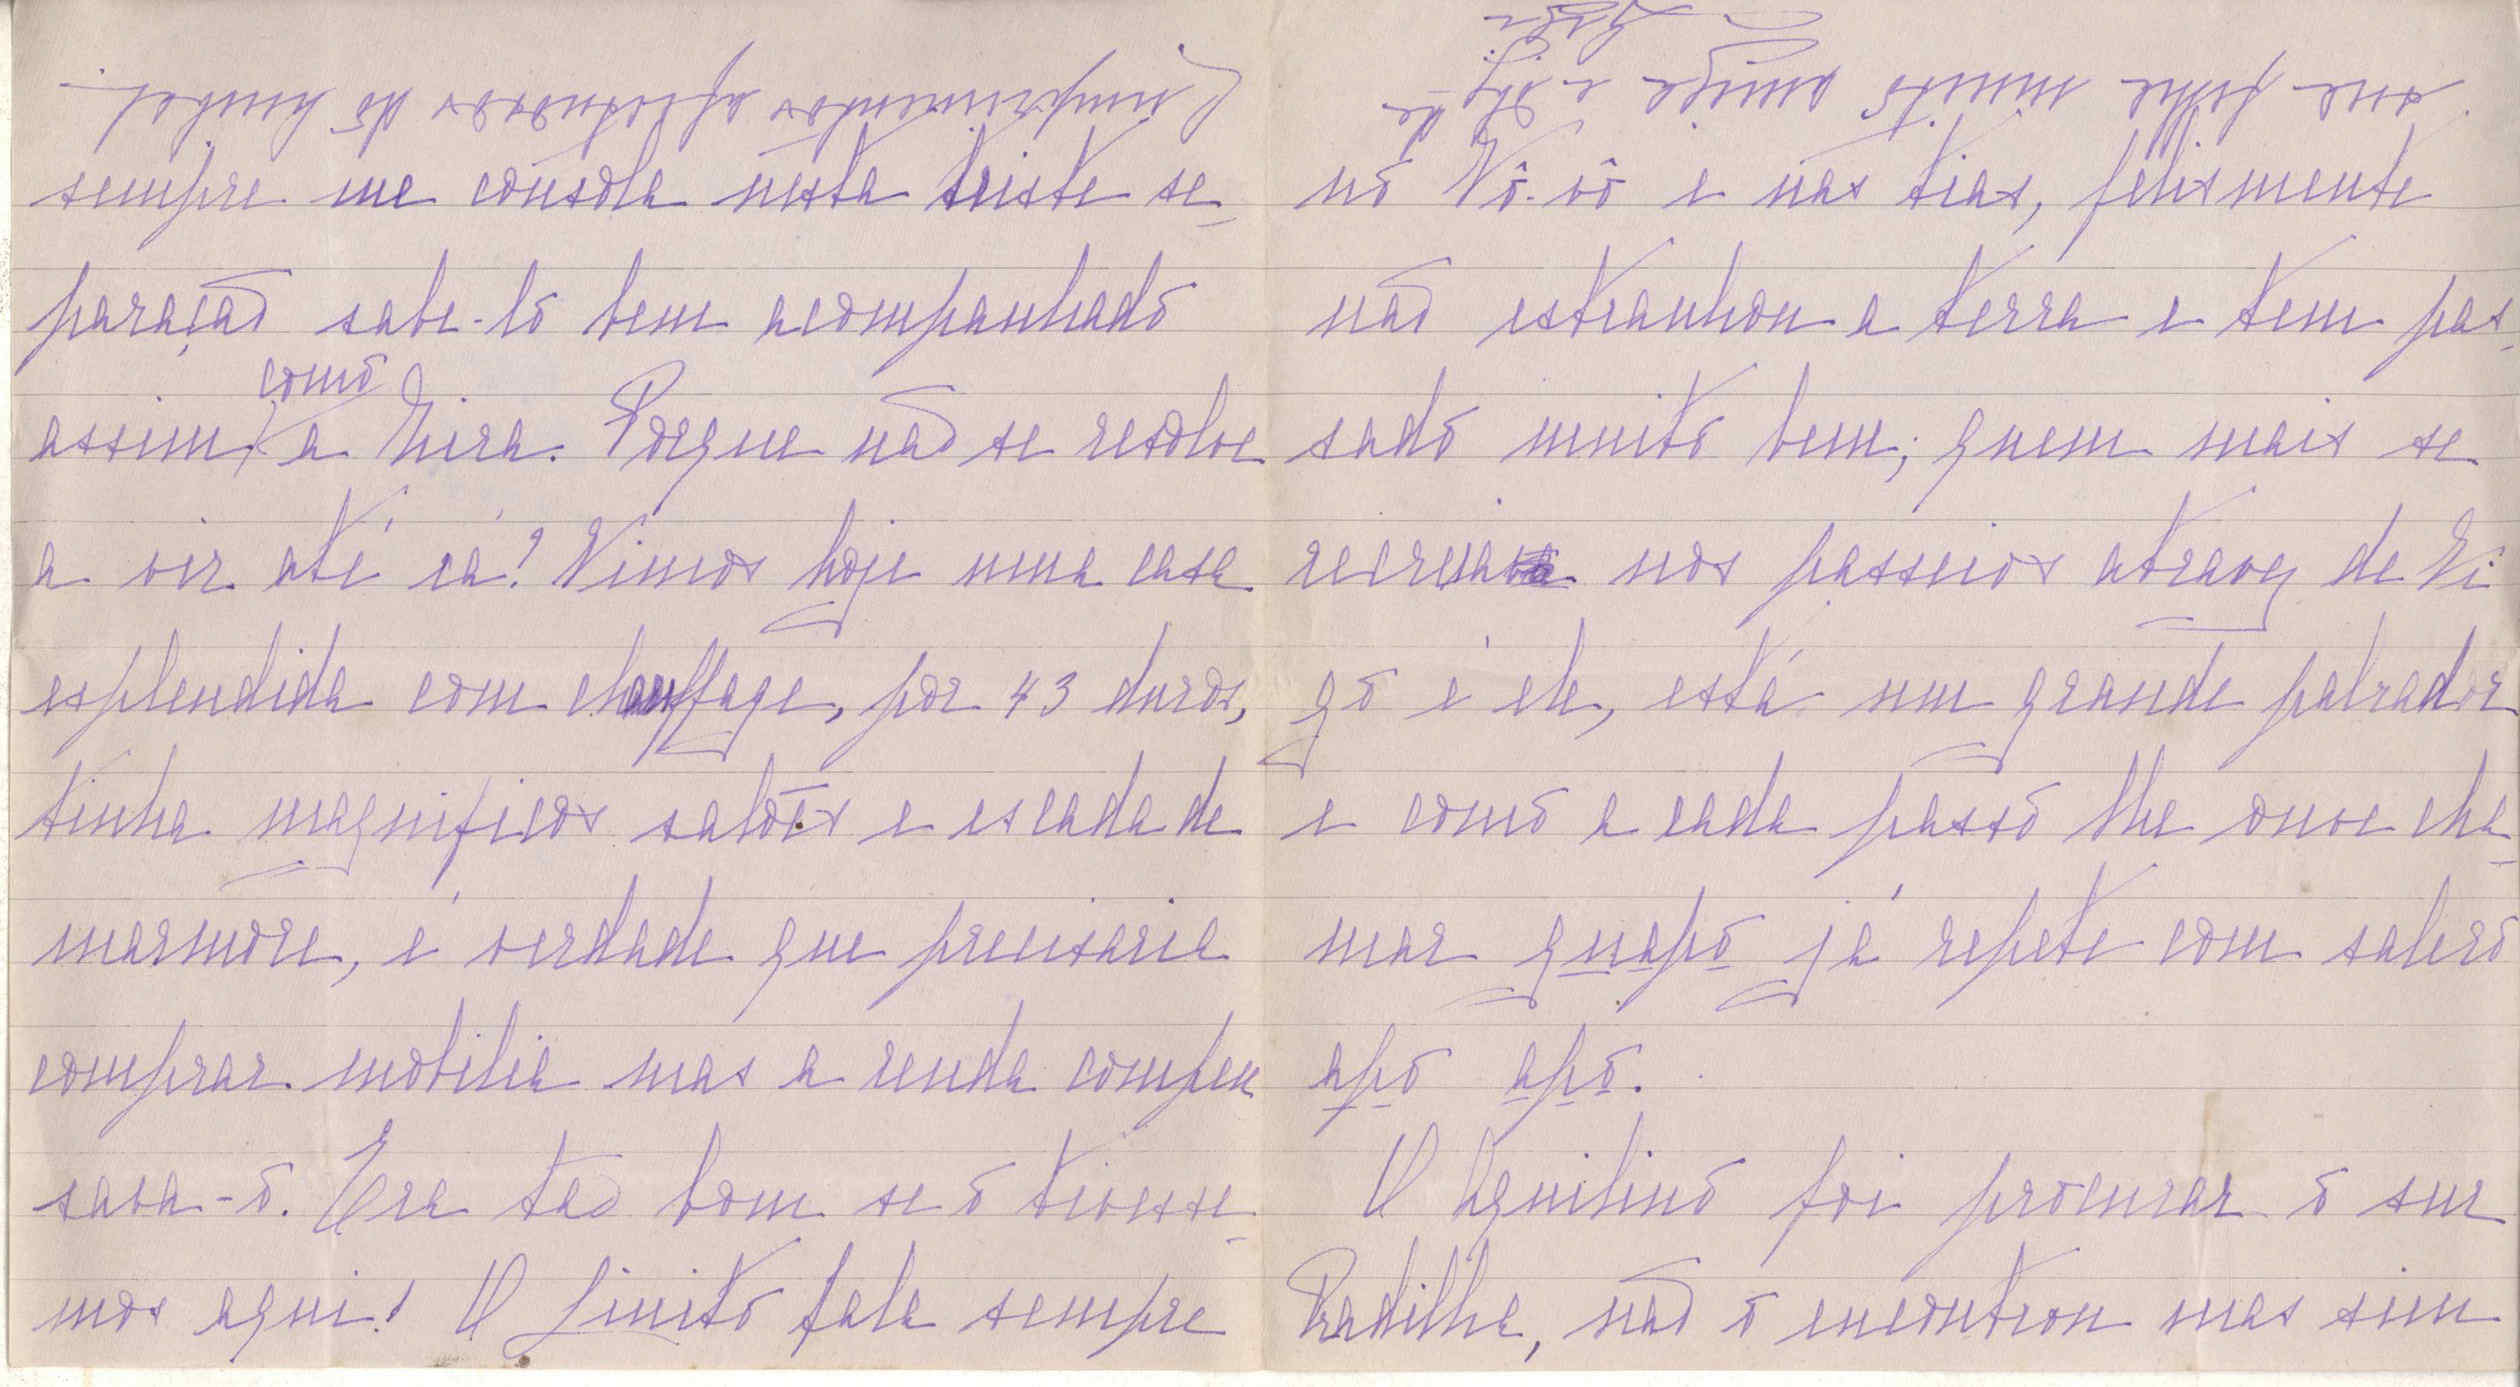 sempre me consola nesta triste se-
paração sabe-lo bem acompanhado
assim, como a Nira. Porque não se resolve
a vir até cá? Vimos hoje uma casa
esplendida com chauffage, por 43 duros,
tinha magnificos salões e escada de
marmore, é verdade que precisaria
comprar mobilia mas a renda compen
sava-o. Era tão bom se o tivesse-
mos aqui! O Linito fala sempre
Cumprimentos afectuosos do Rangel.
no Vô-vô e nas tias, felismente
não estranhou a terra e tem pas-
sado muito bem; quem mais se
recreia nos passeios atravez de Vi
go é ele, está um grande palrador
e como a cada passo lhe ouve cha-
mar guapo já repete com salero
apo apo.
O Aquilino foi procurar o sur
Pradilha, não o encontrou mas sim
sua filha muito amiga e